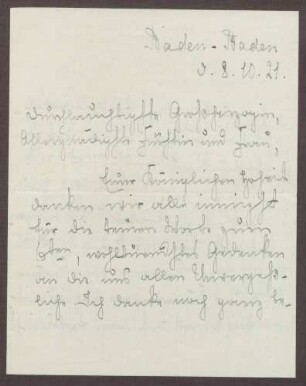 Baden-Baden
d. 8. 10. 21.
Durchlauchtigste Großherzogin,
Allergnädigste Fürstin und Frau,
Eurer Königlichen Hoheit
danken wir alle innigst
für die treuen Worte zum
6ten, wehmutvolles Gedenken
an die uns allen Unvergeß-
liche. Ich danke noch ganz be-